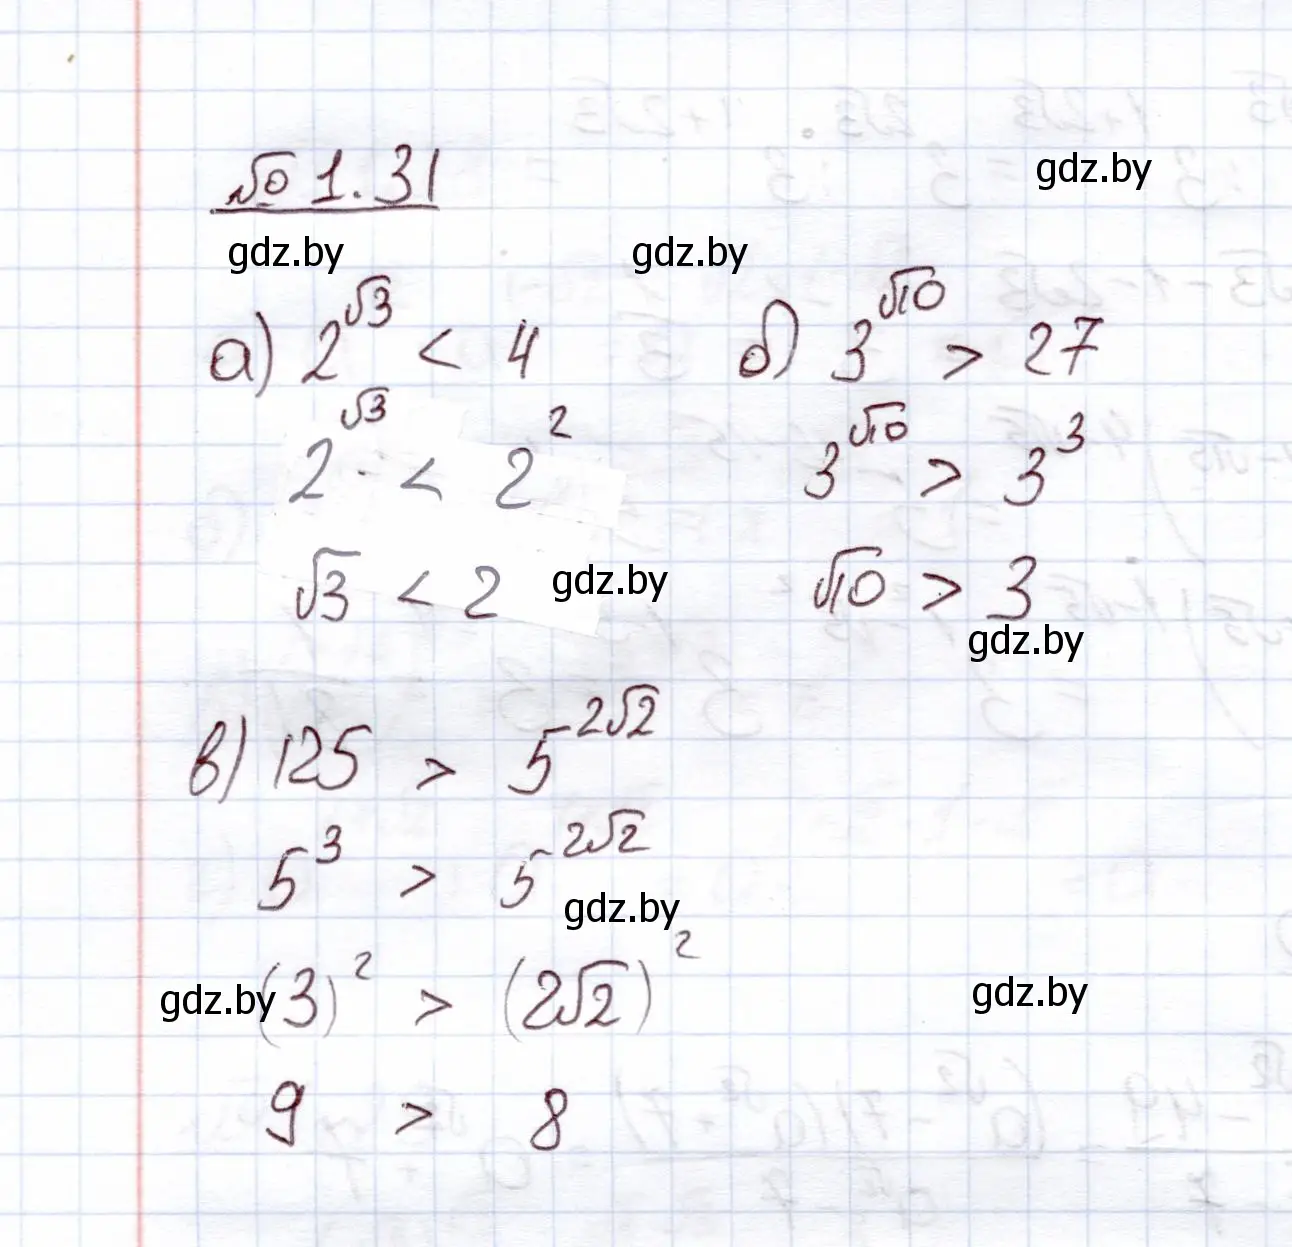 № 1.31
gdz.by
gdz.by gdz.by
а) 2^√3 < 4
2^√3 < 2^2
√3 < 2
gdz.by
б) 3^√10 > 27
3^√10 > 3^3
√10 > 3
gdz.by
в) 125 > 5^2√2
5^3 > 5^2√2
gdz.by
gdz.by (3)^2 > (2√2)^2
gdz.by
9 > 8